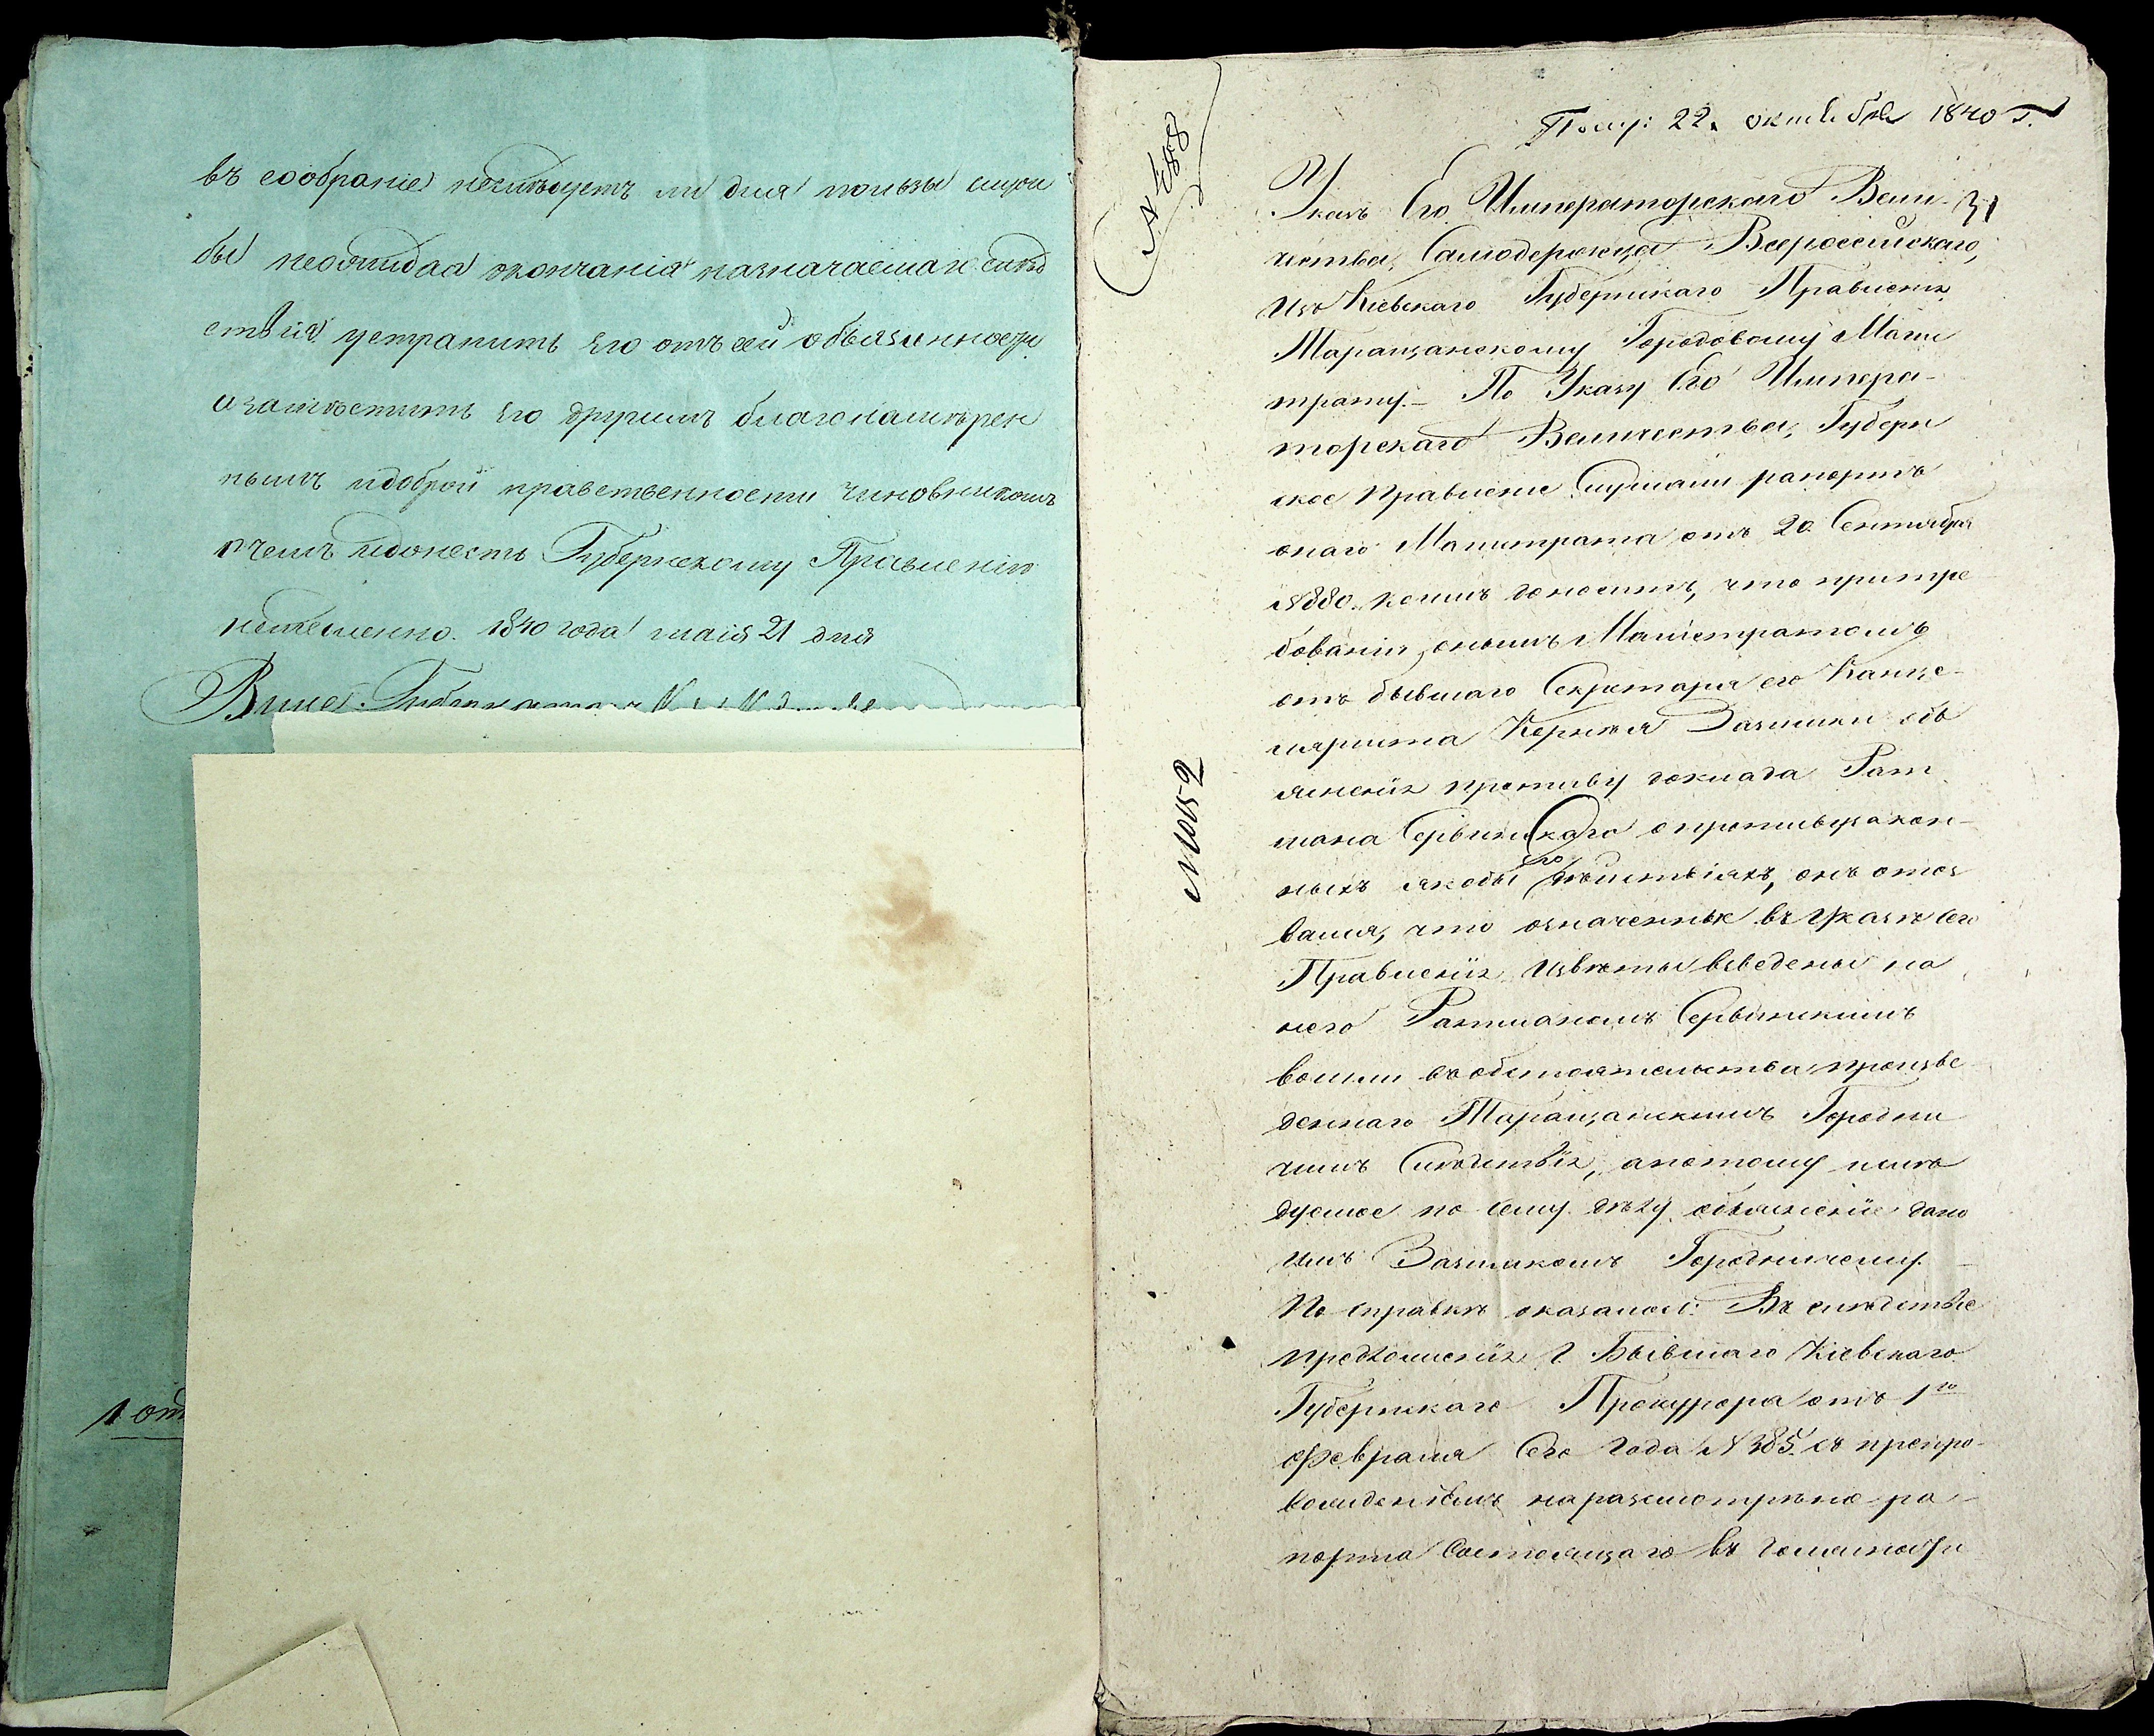 въ сообраніе неслѣдуетъ ли для пользы служ
бы неожидая окончанія назначаемаго слѣд
ствія устранить его отъ сей обьязанности
изамѣстить его другимъ благонамѣрен
нымъ идоброй нравственности чиновникомъ
очемъ идонесть Губернскому Правленію
немѣдленно. 1840 года маія 21 дня
Вице Губернаторъ
1 от
Получ: 22. октября 1840 г.
№ 488
31
Указъ Его Императорскаго Вели-
чества, Самодержца Всероссійскаго,
Изъ Кіевскаго Губернскаго Правленія
Таращанскому Городовому Маги
страту. – По Указу Его Импера-
торскаго Величества, Губерн
ское Правленіе Слушали рапортъ
онаго Магистрата отъ 20 Сентября
№ 880. коимъ доноситъ, что притре
бованіи онымъ Магистратомъ
отъ бывшаго Секретаря его Канце-
ляриста Корнѣя Зазимки объ
ясненія противу доклада Рат
мана Сервинскаго опротивузакон-
ныхъ якобы его дѣйствіяхъ, онъ отоз
вался, что означенные въ Указѣ сего
Правленія извѣты взведены на
него Ратманомъ Сервинскимъ
вошли въ обстоятельства произве
деннаго Таращанскимъ Городни
чимъ Слѣдствія, апотому и слѣ
дуемое по сему дѣлу объясненіе дано
имъ Зазимкомъ Городничему. –
По справкѣ оказалось: Въ слѣдствіе
предложенія Г. Бывшаго Кіевскаго
Губернскаго Прокурора отъ 1го
февраля сего года № 385. съ препро-
вожденіемъ на разсмотрѣніе ра-
порта Состоящаго въ должности
№ 10152